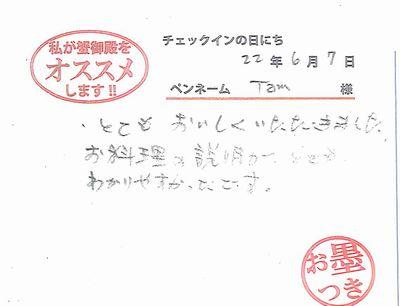 私が蟹御殿を
オススメ
します!!
チェックインの日にち
22年6月7日
ペンネーム Tam 様
・とてもおいしくいただきました。
お料理の説明が、とても
わかりやすかったです。
お墨
つき